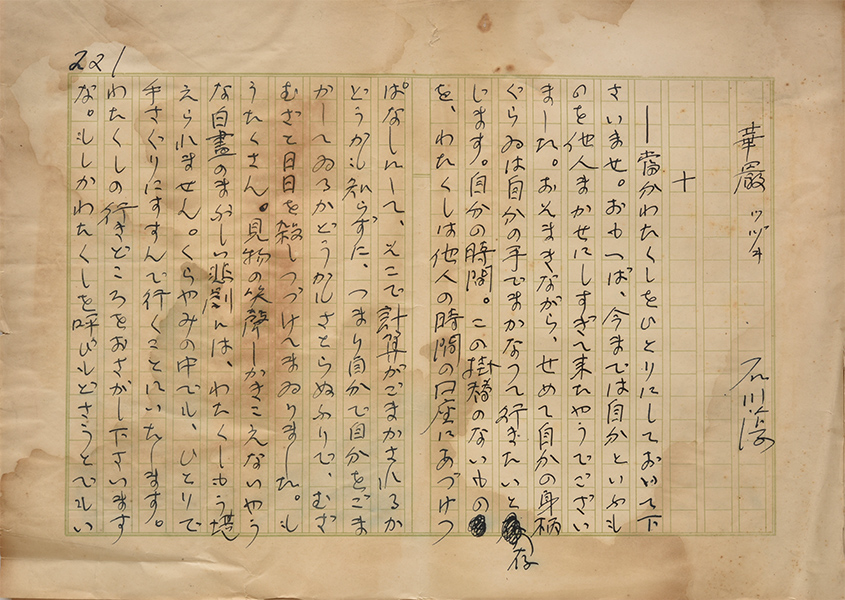 221
華嚴 ツヅキ 石川淳
十
——當分わたくしをひとりにしておいて下
さいませ。おもへば、今までは自分といふも
のを他人まかせにしすぎて来たやうでござい
ました。おそまきながら、せめて自分の身柄
ぐらゐは自分の手でまかなつて行きたいと存
じます。自分の時間。この掛替のないもの
を、わたくしは他人の時間の口座にあづけつ
ぱなしにして、そこで計算がごまかされるか
どうかも知らずに、つまり自分で自分をごま
かしてゐるかどうかもさとらぬふりで、むざ
むざと日日を殺しつづけてまゐりました。も
うたくさん。見物の笑聲しかきこえないやう
な白晝のまぶしい悲劇には、わたくしもう堪
えられません。くらやみの中でも、ひとりで
手さぐりにすすんで行くことにいたします。
わたくしの行きどころをおさがし下さいます
な。もしかわたくしを呼びもどさうとでもい